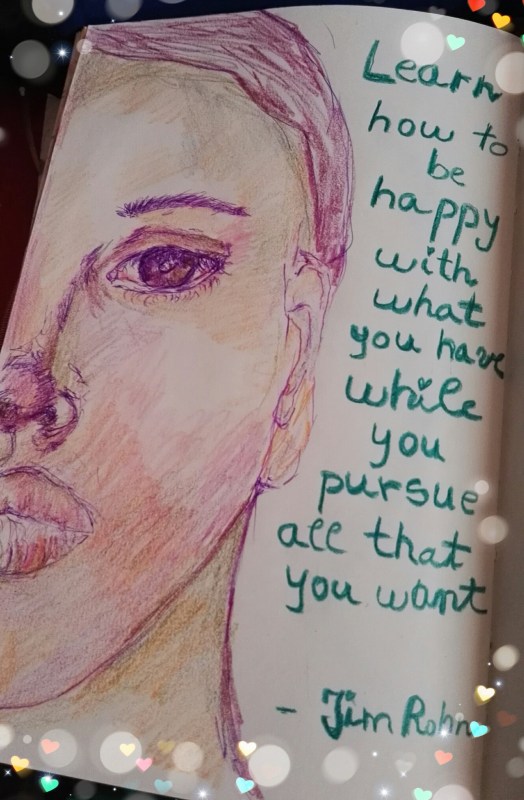 Learn
how to
be
happy
with
what
you have
while
you
pursue
all that
you want
- Jim Rohn